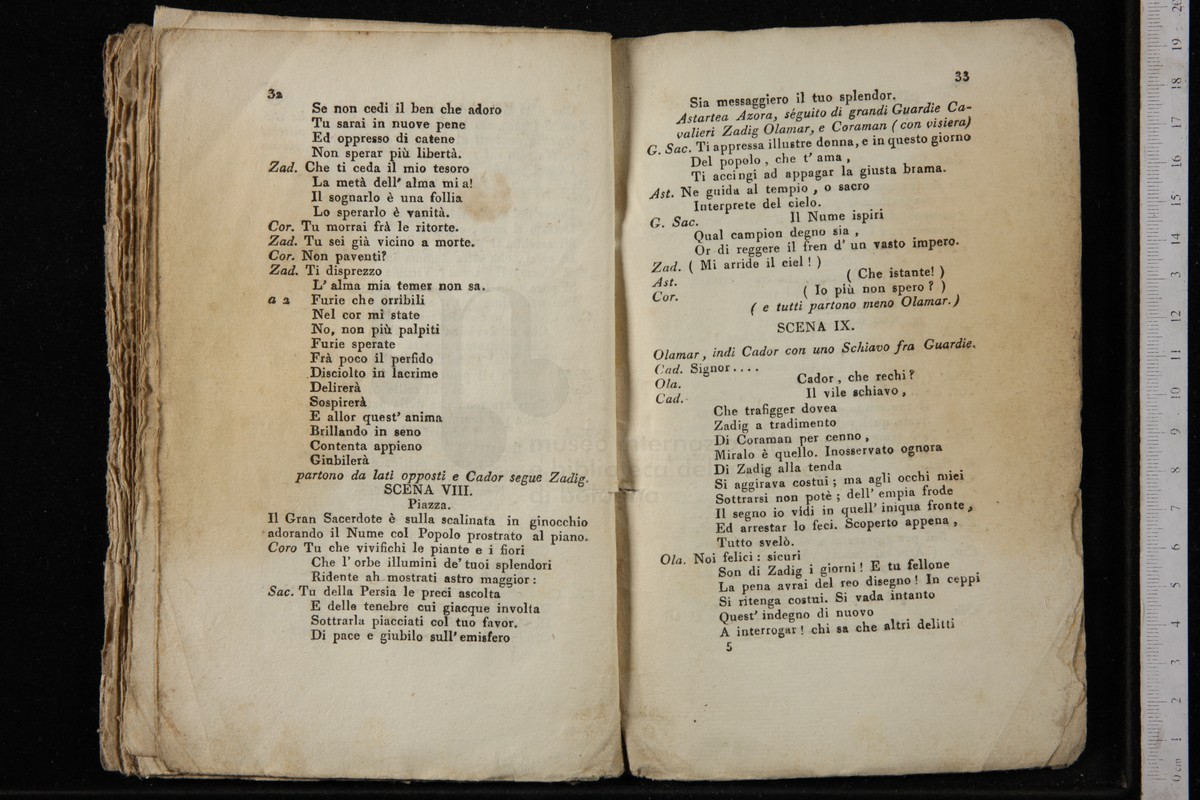 32
Se non cedi il ben che adoro
Tu sarai in nuove pene
Ed oppresso di catene
Non sperar più libertà.
Zad. Che ti ceda il mio tesoro
La metà dell' alma mia!
Il sognarlo è una follia
Lo sperarlo è vanità.
Cor. Tu morrai frà le ritorte.
Zad. Tu sei già vicino a morte.
Cor. Non paventi?
Zad. Ti disprezzo
L' alma mia temer non sa.
a 2 Furie che orribili
Nel cor mi state
No, non più palpiti
Furie sperate
Frà poco il perfido
Disciolto in lacrime
Delirerà
Sospirerà
E allor quest' anima
Brillando in seno
Contenta appieno
Giubilerà
partono da lati opposti e Cador segue Zadig.
SCENA VIII.
Piazza.
Il Gran Sacerdote è sulla scalinata in ginocchio
adorando il Nume col Popolo prostrato al piano.
Coro Tu che vivifichi le piante e i fiori
Che l' orbe illumini de' tuoi splendori
Ridente ah mostrati astro maggior:
Sac. Tu della Persia le preci ascolta
E delle tenebre cui giacque involta
Sottrarla piacciati col tuo favor.
Di pace e giubilo sull' emisfero
33
Sia messaggiero il tuo splendor.
Astartea Azora, séguito di grandi Guardie Ca-
valieri Zadig Olamar, e Coraman (con visiera)
G. Sac. Ti appressa illustre donna, e in questo giorno
Del popolo, che t' ama,
Ti accingi ad appagar la giusta brama.
Ast. Ne guida al tempio, o sacro
Interprete del cielo.
G. Sac. Il Nume ispiri
Qual campion degno sia,
Or di reggere il fren d' un vasto impero.
Zad. ( Mi arride il ciel! )
Ast. ( Che istante! )
Cor. ( Io più non spero? )
( e tutti partono meno Olamar.)
SCENA IX.
Olamar, indi Cador con uno Schiavo fra Guardie.
Cad. Signor....
Ola. Cador, che rechi?
Cad. Il vile schiavo,
Che trafigger dovea
Zadig a tradimento
Di Coraman per cenno,
Miralo è quello. Inosservato ognora
Di Zadig alla tenda
Si aggirava costui; ma agli occhi miei
Sottrarsi non potè; dell' empia frode
Il segno io vidi in quell' iniqua fronte,
Ed arrestar lo feci. Scoperto appena,
Tutto svelò.
Ola. Noi felici: sicuri
Son di Zadig i giorni! E tu fellone
La pena avrai del reo disegno! In ceppi
Si ritenga costui. Si vada intanto
Quest' indegno di nuovo
A interrogar! chi sa che altri delitti
5